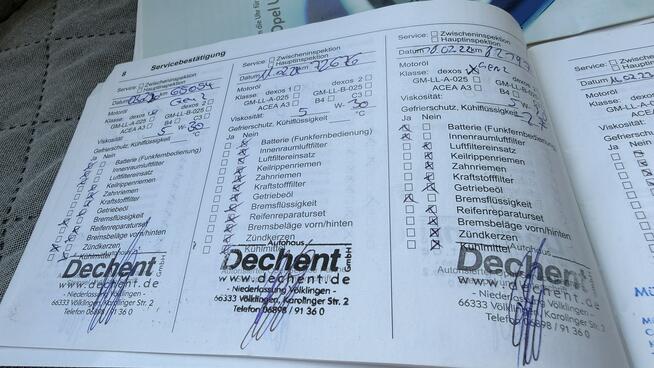 8 Servicebestätigung
Service: Zwischeninspektion
Hauptinspektion
Datum km 66054
Motoröl
Klasse: dexos 1 dexos 2
GM-LL-A-025 GM-LL-B-025
ACEA A3 B4 C3
Viskosität: 5 W- 30
Gefrierschutz, Kühlflüssigkeit
Ja Nein
Batterie (Funkfernbedienung)
Innenraumluftfilter
Luftfiltereinsatz
Keilrippenriemen
Zahnriemen
Kraftstofffilter
Getriebeöl
Bremsflüssigkeit
Reifenreparaturset
Bremsbeläge vorn/hinten
Zündkerzen
Kühlmittel
Dechent GmbH
www.dechent.de
- Niederlassung Völklingen -
66333 Völklingen, Karolinger Str. 2
Telefon 06898 / 91 36 0
Service: Zwischeninspektion
Hauptinspektion
Datum km 72676
Motoröl
Klasse: dexos 1 dexos 2
GM-LL-A-025 GM-LL-B-025
ACEA A3 B4 C3
Viskosität: 5 W- 30
Gefrierschutz, Kühlflüssigkeit °C
Ja Nein
Batterie (Funkfernbedienung)
Innenraumluftfilter
Luftfiltereinsatz
Keilrippenriemen
Zahnriemen
Kraftstofffilter
Getriebeöl
Bremsflüssigkeit
Reifenreparaturset
Bremsbeläge vorn/hinten
Zündkerzen
Kühlmittel
Autohaus
Dechent GmbH
www.dechent.de
- Niederlassung Völklingen -
66333 Völklingen, Karolinger Str. 2
Telefon 06898 / 91 36 0
Service: Zwischeninspektion
Hauptinspektion
Datum km
Motoröl
Klasse: dexos
GM-LL-A-025 GM-LL-B-025
ACEA A3 B4 C3
Viskosität: 5 W-
Gefrierschutz, Kühlflüssigkeit
Ja Nein
Batterie (Funkfernbedienung)
Innenraumluftfilter
Luftfiltereinsatz
Keilrippenriemen
Zahnriemen
Kraftstofffilter
Getriebeöl
Bremsflüssigkeit
Reifenreparaturset
Bremsbeläge vorn/hinten
Zündkerzen
Kühlmittel
Autohaus
Dechent
www.dechent.de
- Niederlassung Völklingen -
66333 Völklingen, Karolinger Str. 2
Telefon 06898 / 91 36 0
Service:
Datum
Motoröl
Klasse:
GM-LL-A-025
ACEA
Viskosität:
Gefrierschutz
Ja Nein